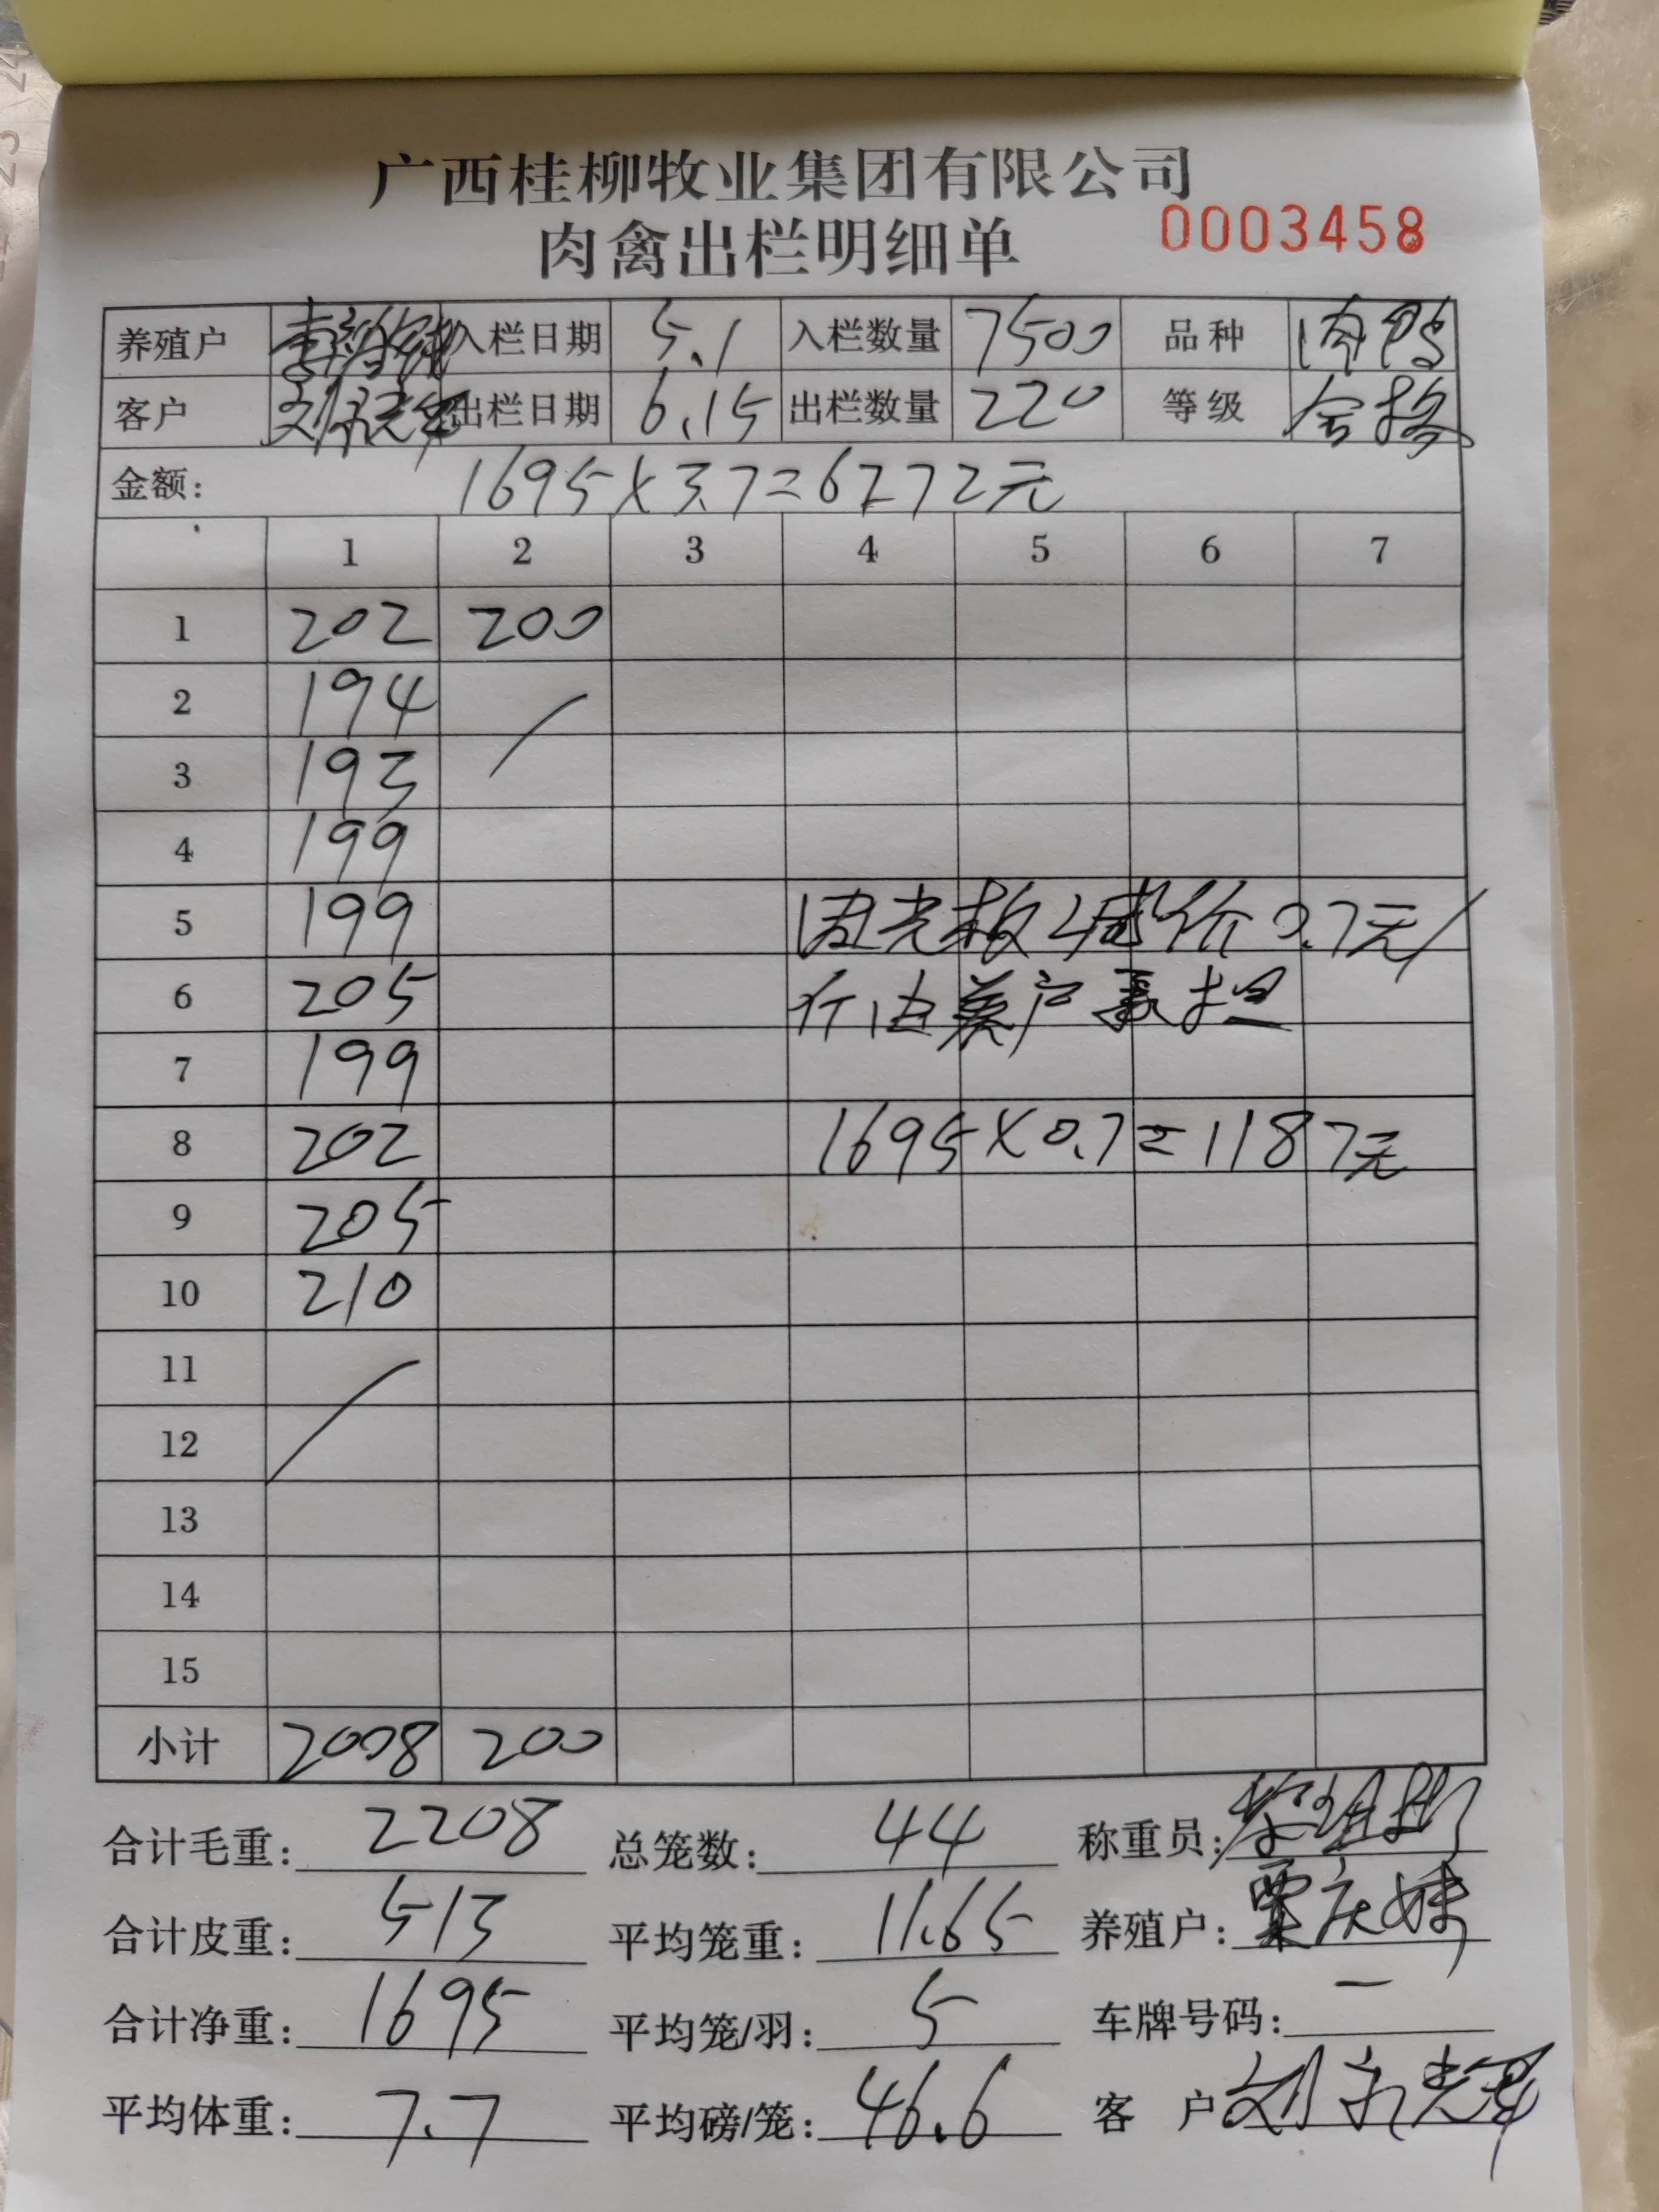 广西桂柳牧业集团有限公司
肉禽出栏明细单 0003458
养殖户 入栏日期 5.1 入栏数量 7500 品种 肉鸭
客户 刘永辉 出栏日期 6.15 出栏数量 220 等级 合格
金额: 1695×3.7=6272元
1 2 3 4 5 6 7
1 202 200
2 194
3 193
4 199
5 199 因光板减价0.7元/
6 205 斤由养户承担
7 199
8 202 1695×0.7=1187元
9 205
10 210
11
12
13
14
15
小计 2008 200
合计毛重: 2208 总笼数: 44 称重员:
合计皮重: 513 平均笼重: 11.65 养殖户: 覃庆妹
合计净重: 1695 平均笼/羽: 5 车牌号码: 一
平均体重: 7.7 平均磅/笼: 46.6 客 户 刘永辉